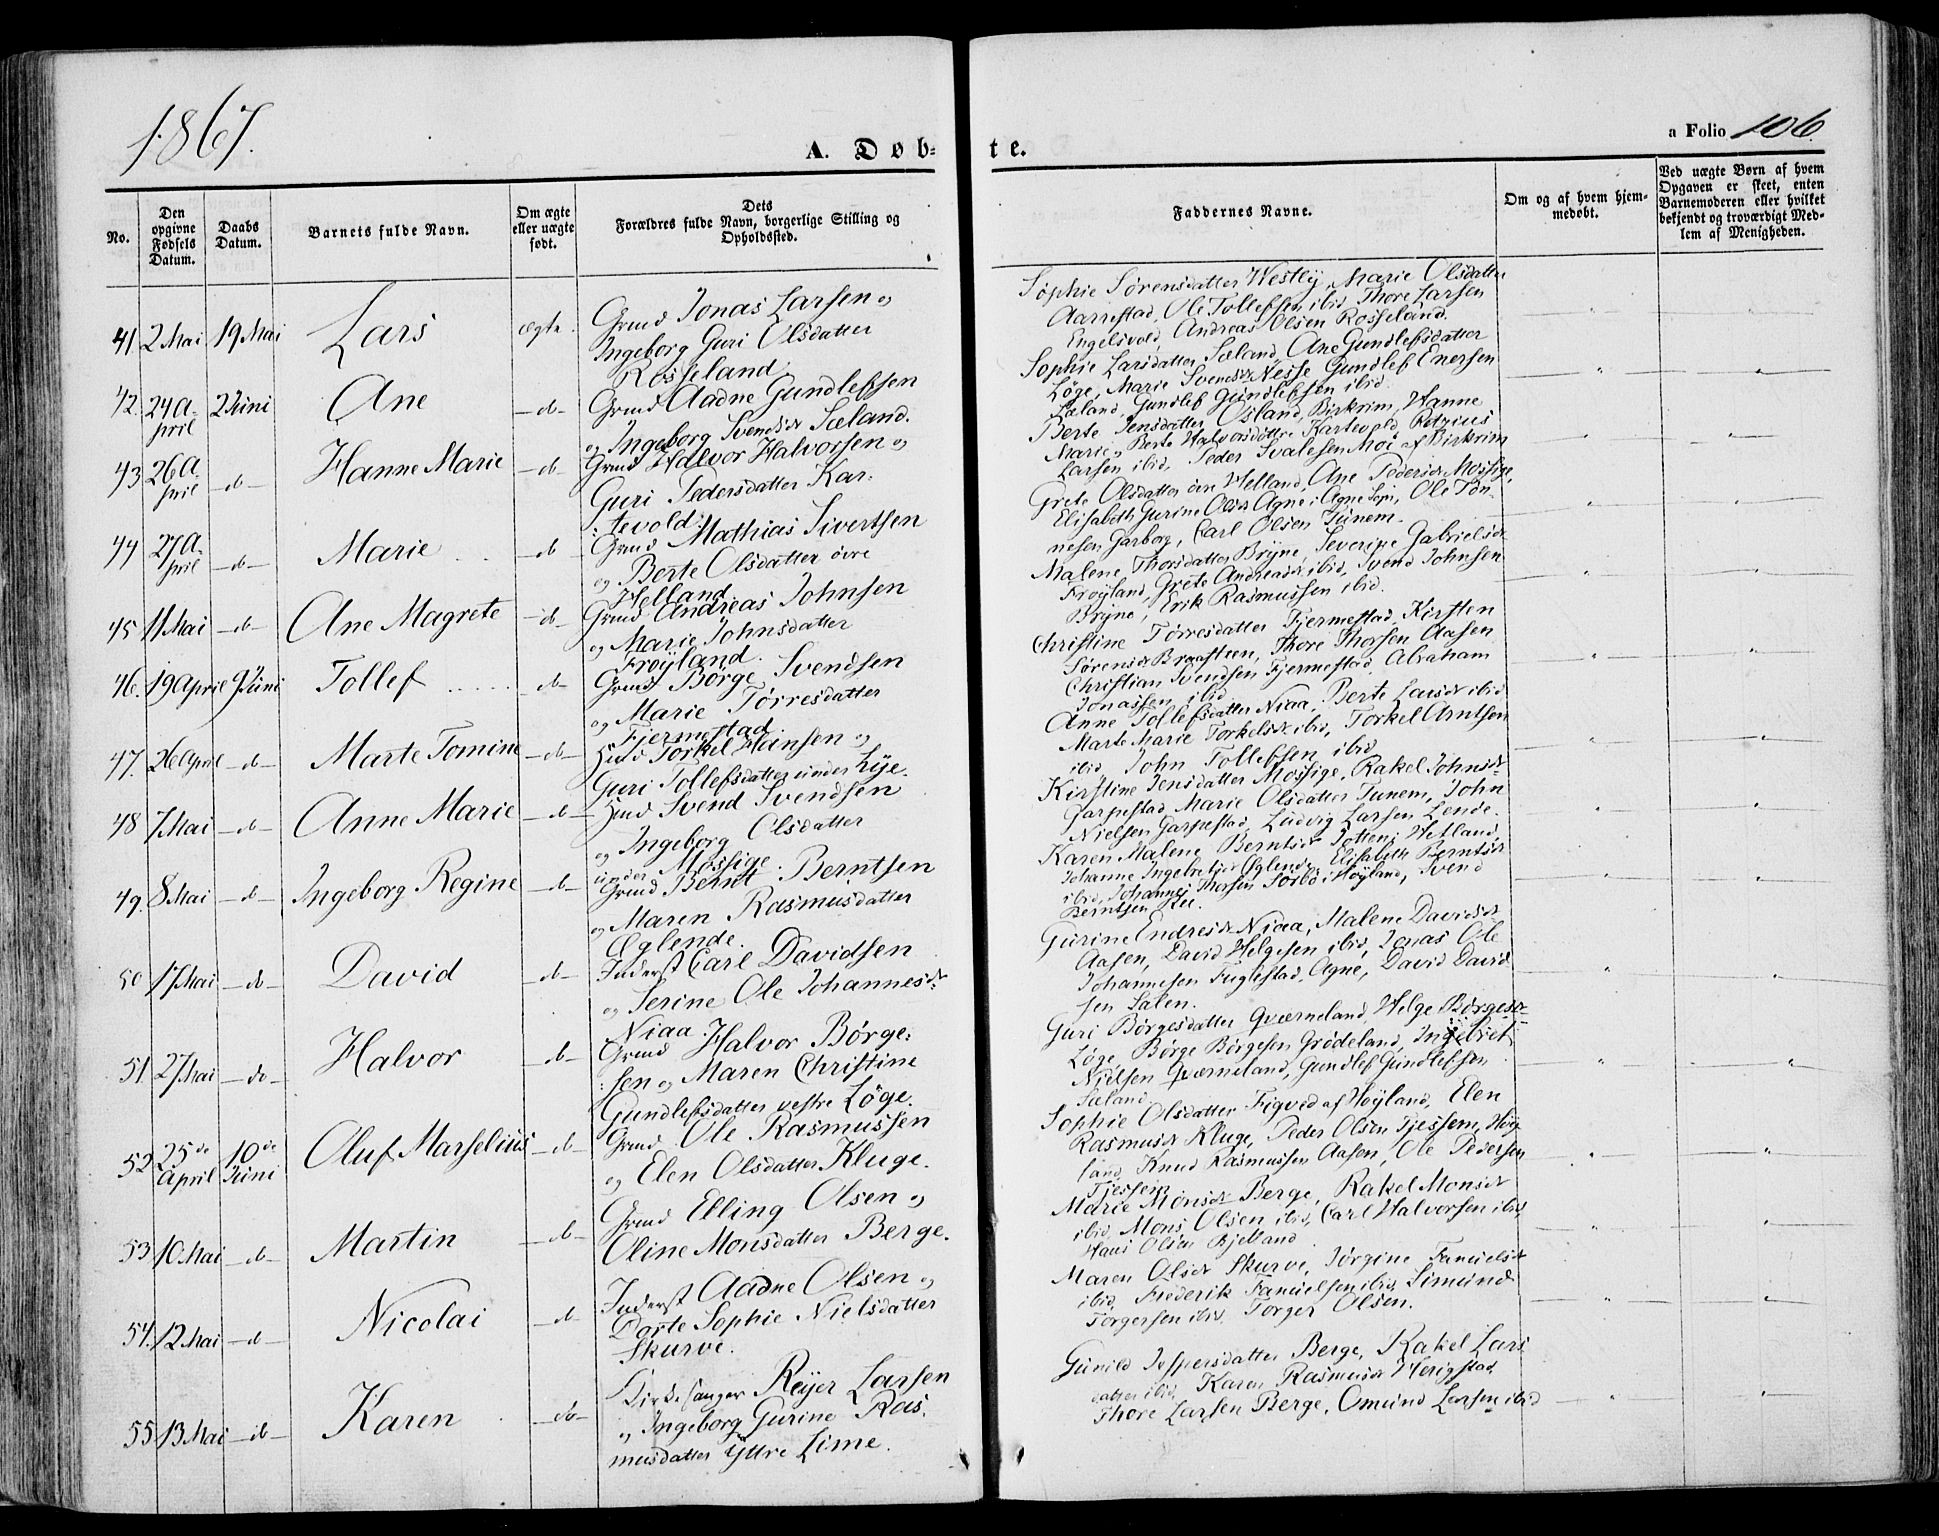 1867.
A. Døb-
te.
a Folio 106.
No.
Den opgivne Fødsels Datum.
Daabs Datum.
Barnets fulde Navn.
Om ægte eller uægte født.
Dets Forældres fulde Navn, borgerlige Stilling og Opholdssted.
Faddernes Navne.
Om og af hvem hjemmedøbt.
Ved uægte Børn af hvem Opgaven er skeet, enten Barnemoderen eller hvilket bekjendt og troværdigt Medlem af Menigheden.
41 2 Mai 19 Mai Lars ægte.
Grmd Jonas Larsen og
Ingeborg Guri Olsdatter
Rosseland.
Sophie Sørensdatter Westly, Marie Olsdatter
Aarrestad, Ole Tollefsen ibid, Thore Larsen
Engelsvold, Andreas Olsen Rosseland.
42. 24 April 2 Juni Ane – do –
Grmd Aadne Gundlefsen
og Ingeborg Svendsd. Sæland.
Sophie Larsdatter Sæland, Ane Gundlefsdatter
Løge, Marie Svendsd. Nesse, Gundlef Enersen
Sæland, Gundlef Gundlefsen ibid.
43 26 April – do – Hanne Marie – do –
Grmd Halvor Halvorsen og
Guri Pedersdatter Kar:
:tevold.
Berte Jensdatter Osland, Birkrim, Hanne
Marie, Berte Halvorsdøttre Kartevold, Petrius
Larsen ibid, Peder Svalesen Moi af Birkrim
44 27 April – do – Marie – do –
Grmd Mathias Sivertsen
og Berte Olsdatter øvre
Helland
Grete Olsdatter øvre Helland, Ane Pedersd. Mossige,
Elisabeth Gurine Olsd. Agne i Agne Sogn, Ole Tøn-
nesen Garborg, Carl Olsen Tunem.
45 11 Mai – do – Ane Magrete – do –
Grmd Andreas Johnsen
og Marie Johnsdatter
Frøyland.
Malene Thorsdatter Bryne, Severine Gabrielsd.
Frøyland, Grete Andreasd. ibid, Svend Johnsen
Bryne, Erik Rasmussen ibid.
46. 19 April 9 Juni Tollef – do –
Grmd Børge Svendsen
og Marie Tørresdatter
Fjermestad
Christine Tørresdatter Fjermestad, Kirsten
Sørensd. Braasteen, Thore Thorsen Aasen
Christian Svendsen Fjermestad, Abraham
Jonassen ibid.
47. 26 April – do – Marte Tomine – do –
Hmd Torkel Hansen og
Guri Tollefsdatter under Lye.
Anne Tollefsdatter Niaa, Berte Larsd. ibid
Marte Marie Torkelsd. ibid, Torkel Arntsen
ibid John Tollefsen ibid
48 7 Mai – do – Anne Marie – do –
Hmd Svend Svendsen
og Ingeborg Olsdatter
under Mossige.
Kirstine Jensdatter Mossige, Rakel Johnsd.
Garpestad, Marie Olsdatter Tunem, John
Nielsen Garpestad, Ludvig Larsen Lende.
49. 8 Mai – do – Ingeborg Regine – do –
Grmd Bernt Berntsen
og Maren Rasmusdatter
Øglende.
Karen Malene Berntsd. Hetland,
Johanne Ingebretsd. Øglende, Elisabeth Berntsd.
ibid, Johannes Thorsen Sørbø i Høyland, Svend
Berntsen
50 17 Mai – do – David – do –
Inderst Carl Davidsen
og Serine Ole Johannesd.
Niaa
Gurine Endresd. Niaa, Malene Davidsd.
Aasen, David Helgesen ibid, Jonas Ole
Johannesen Fuglestad, Ogne, David David
sen Salen.
51. 27 Mai – do – Halvor – do –
Grmd Halvor Børge:
:sen og Maren Christine
Gundlefsdatter vestre Løge.
Guri Børgesdatter Qværneland, Helge Børgesd.
Løge, Børge Børgesen Grødeland, Ingebret
Nielsen Qværneland, Gundlef Gundlefsen
Sæland.
52 25de April 10de Juni Oluf Marselius – do –
Grmd Ole Rasmussen
og Elen Olsdatter Kluge.
Sophie Olsdatter Figved af Høyland, Elen
Rasmusd. Kluge, Peder Olsen Tjessem, Høy-
land, Knud Rasmussen Aasen, Ole Pedersen
Tjessem
53 10 Mai – do – Martin – do –
Grmd Elling Olsen og
Oline Monsdatter Berge.
Marie Monsd. Berge, Rakel Monsd.
ibid, Mons Olsen ibid, Carl Halvorsen ibid,
Hans Olsen Bjelland
54. 12 Mai – do – Nicolai – do –
Inderst Aadne Olsen og
Dorte Sophie Nielsdatter
Skurve.
Maren Olsd. Skurve, Jørgine Samuelsd.
ibid, Frederik Samuelsen ibid, Simund
Torgersen ibid, Torger Olsen.
55 13 Mai – do – Karen – do –
Kirkesanger Reyer Larsen
og Ingeborg Gurine Ras-
musdatter Yttre Lime.
Gunild Jespersdatter Berge, Rakel Lars
datter ibid, Karen Rasmusd. Herigstad,
Thore Larsen Berge, Omund Larsen ibid